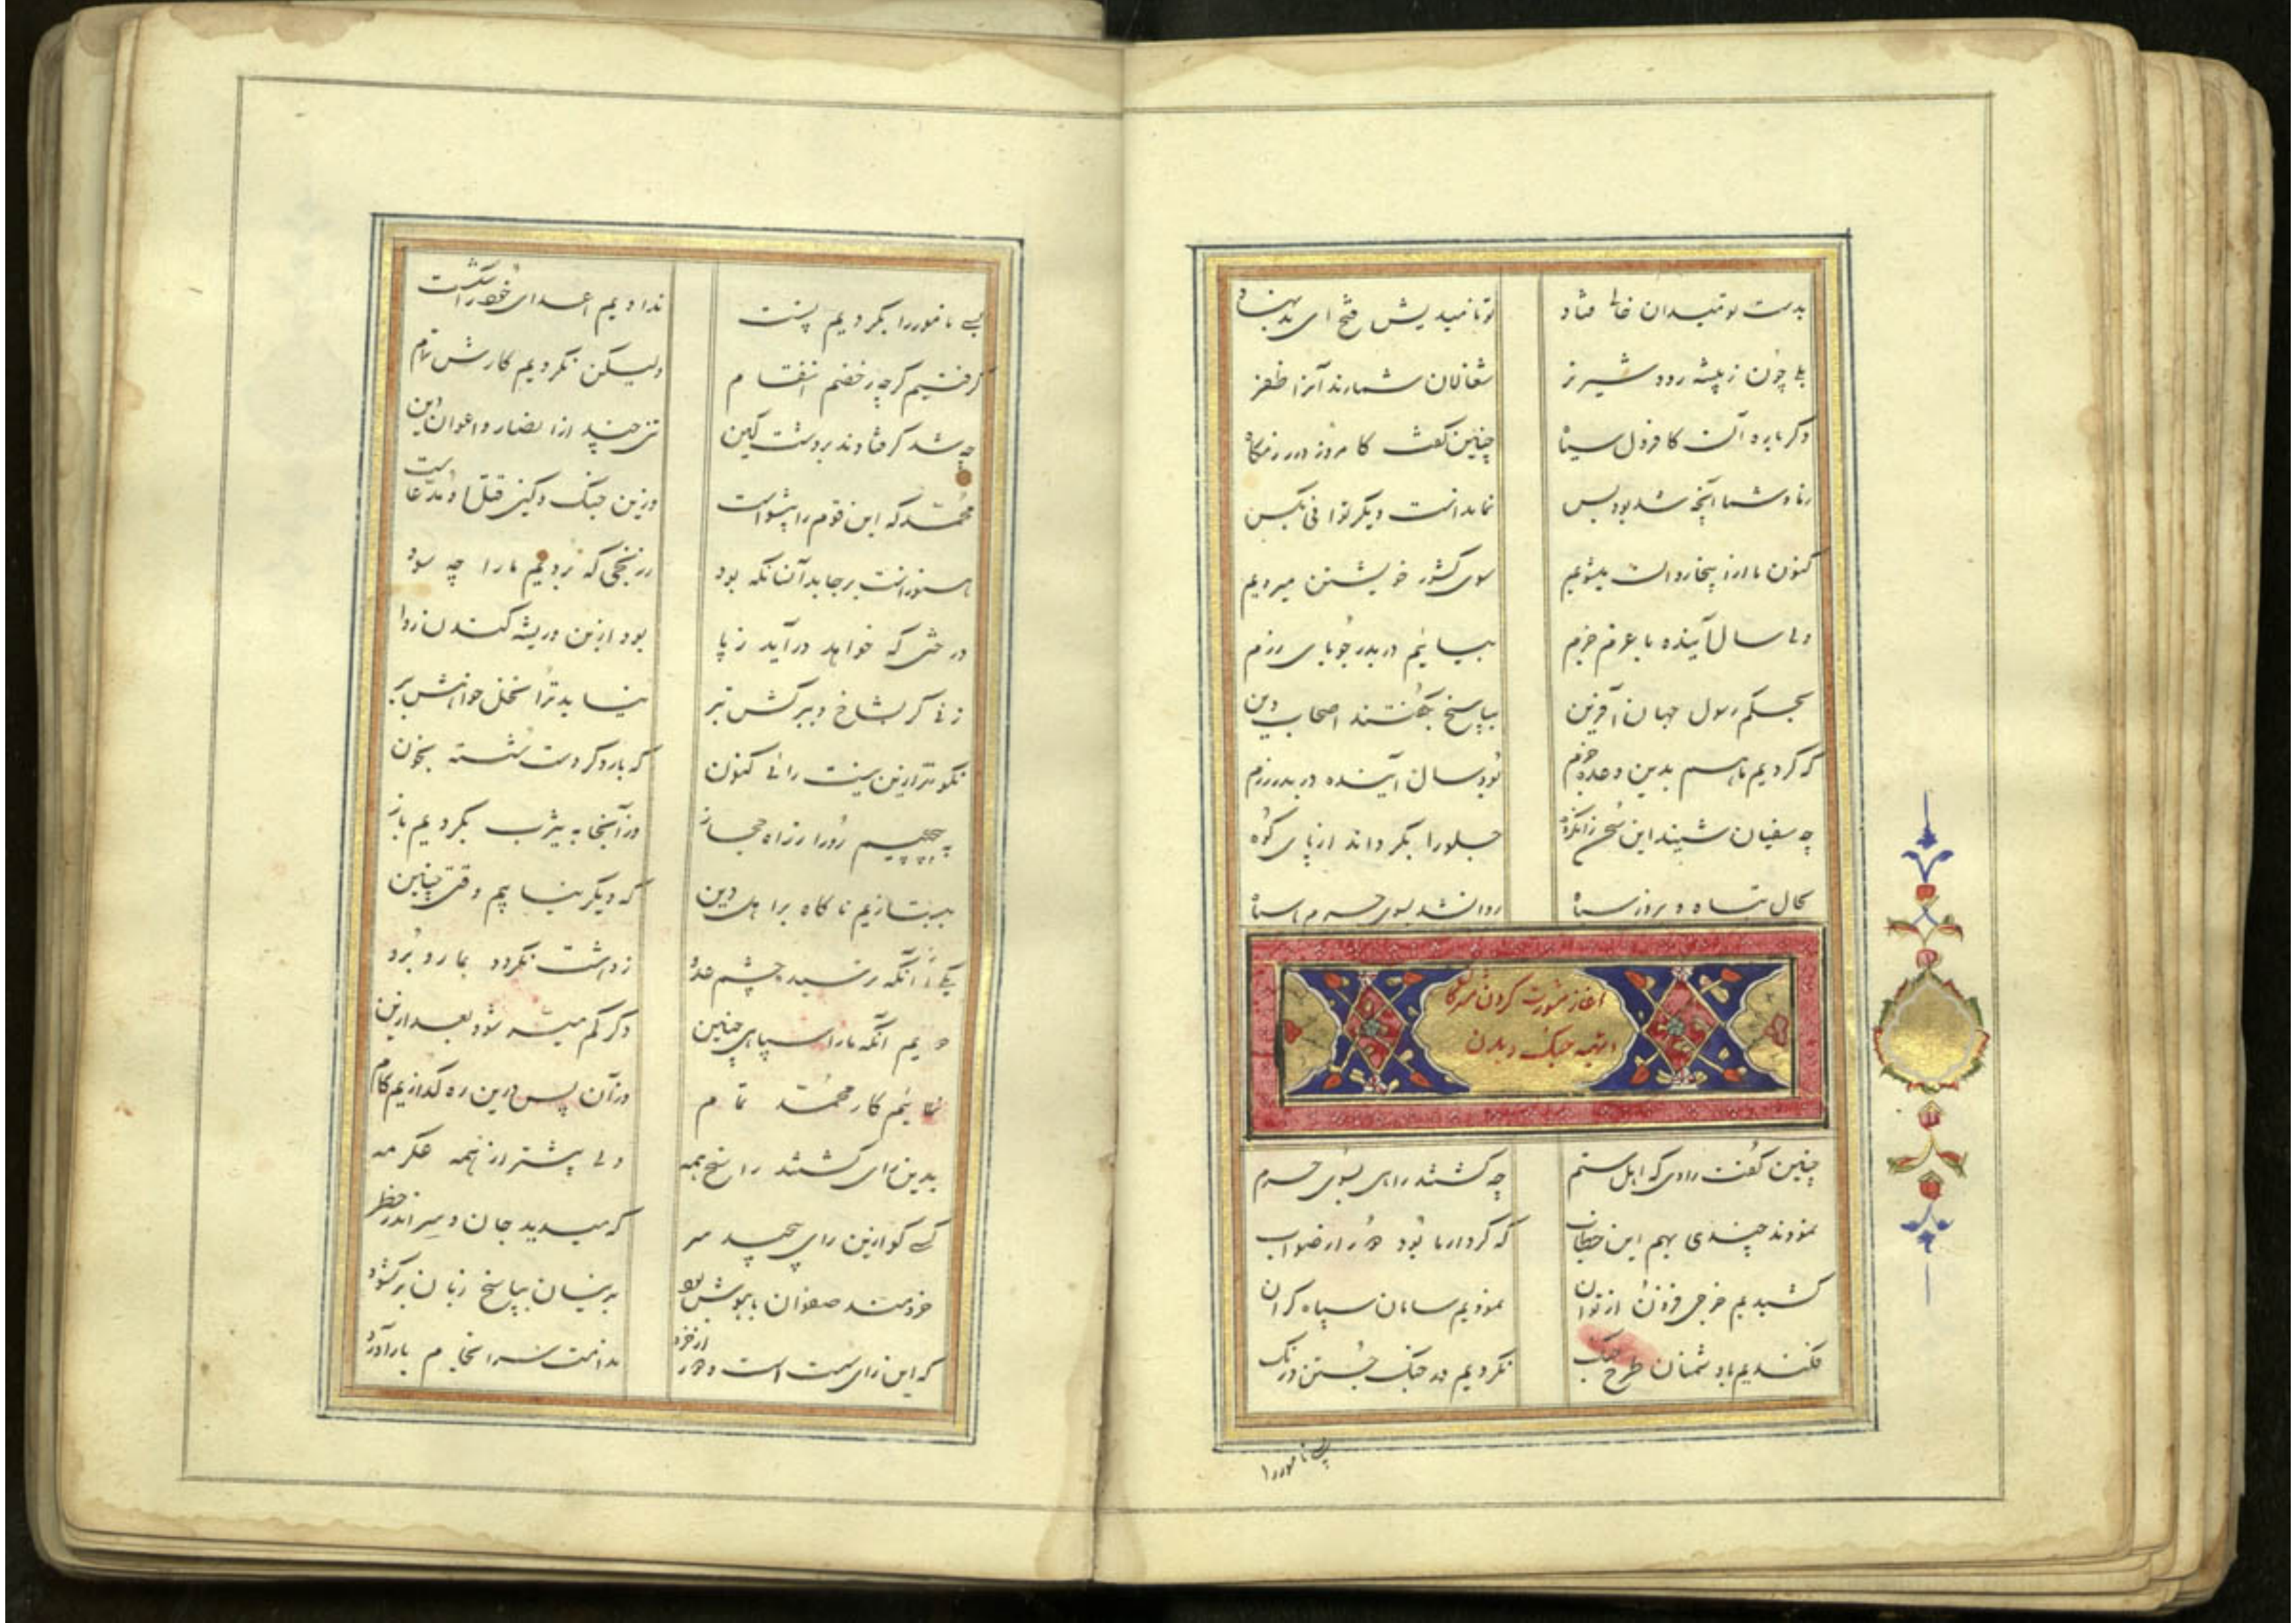 بدست تو میدان خالی فتاد
تو نامیدیش فتح ای بد نهاد
بلی چون ز بیشه رود شیر نر
شغالان شمارند آنرا ظفر
دگر باره آن کافر دل سیاه
چنین گفت کامروز در رزمگاه
ز ما و شما آنچه شد بود بس
نماندست دیگر توانی بکس
کنون ما ازاینجا روان میشویم
سوی کشور خویشتن میرویم
ولی سال آینده با عزم جزم
بیائیم در بدر جویای رزم
بحکم رسول جهان آفرین
بپاسخ بگفتند اصحاب دین
که کردیم ما هم بدین وعده جزم
بود سال آینده در بدر رزم
چه سفیان شنید این سخن زانگروه
جلو را بگرداند از پای کوه
بحال تباه و بروز سیاه
روانشد بسوی حرم با سپاه
آغاز مشورت کردن
تتمه جنگ و
چنین گفت راوی که اهل ستم
چه گشتند راهی بسوی حرم
نمودند چندی بهم این خطاب
که کردار ما بود دور از صواب
کشیدیم خرجی فزون از توان
نمودیم سامان سپاه گران
فکندیم با دشمنان طرح جنگ
نکردیم در جنگ جستن درنگ
پی نامور را
بسی نامور را بکردیم پست
ندادیم اعدای خود را شکست
گرفتیم گرچه ز خصم انتقام
ولیکن نکردیم کارش تمام
چه شد گر فتادند بر دشت کین
تنی چند از انصار و اعوان دین
محمد که این قوم را پیشواست
وزین جنگ و کین قتل او مدعاست
هنوزست بر جا بد آنسانکه بود
ز رنجی که بردیم ما را چه سود
درختی که خواهد درآید ز پا
بود از بن و ریشه کندن روا
زنی گر بشاخ و ببرگش تبر
نیاید ترا نخل خواهش ببر
نکوتر ازین نیست رائی کنون
که بار دگر دست شسته بخون
بپیچیم رو را ز راه حجاز
وز آنجا به یثرب بگردیم باز
بتازیم ناگاه بر اهل دین
که دیگر نیابیم وقتی چنین
یکی آنکه رسید چشم عدو
ز دهشت نگردد بما روبرو
دویم آنکه ما را سپاهی چنین
دگر کم میسر شود بعد ازین
نمائیم کار محمد تمام
وز آن پس درین ره گذاریم گام
بدین رای گشتند راسخ همه
ولی پیشتر از همه عکرمه
کسی کو ازین رای پیچید سر
که میدید جان و سر اندر خطر
خردمند صفوان با هوش بود
بدینسان بپاسخ زبان برگشود
که این رای سست است و دور از خرد
ندامت سرانجام بار آورد